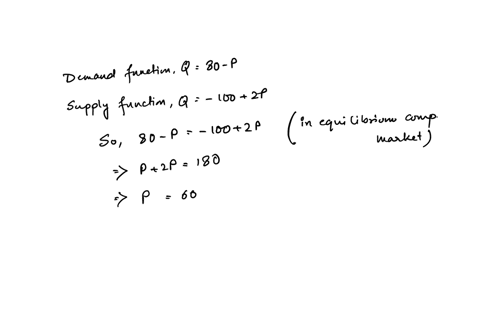 Demand function, Q = 80-P
Supply function, Q = -100+2P
So, 80-P = -100+2P (in equilibrium comp market)
=> P+2P = 180
=> P = 60